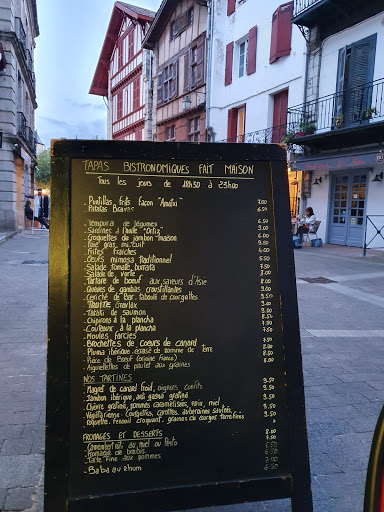 TAPAS BISTRONOMIQUES FAIT MAISON
Tous les jours de 18h30 à 23h00
Puntillas frits, façon "Amatxi" 7.00
Patatas Bravas 6.50
Tempura de légumes
Sardines à l'huile "Ortiz"
Croquettes du jambon maison
Foie gras, mi-cuit
Frites Fraîches
Oeufs mimosa traditionnel
Salade tomate, burrata
Salade verte
Tartare de boeuf aux saveurs d'Asie
Queues de gambas croustillantes
Ceviche de Bar, taboulé de courgettes
Truite Gravlax
Tataki de saumon
Chipirons à la plancha
Couteaux à la plancha
Moules farcies
Brochettes de coeurs de canard
Pluma ibérique, écrasé de pomme de terre
Pièce de Boeuf
Aiguillettes de poulet aux graines
NOS TARTINES
Magret de canard froid, oignons confits 9.50
Jambon ibérique, ardi gasna gratiné 9.50
Chèvre gratiné, pommes caramélisées, noix, miel
Végétarienne: courgettes, carottes, aubergines
roquette, fenouil croquant, graines de courges torréfiées
FROMAGES ET DESSERTS
Camembert rôti au miel ou pesto
Fromage de brebis
Tarte fine aux pommes
Baba au Rhum